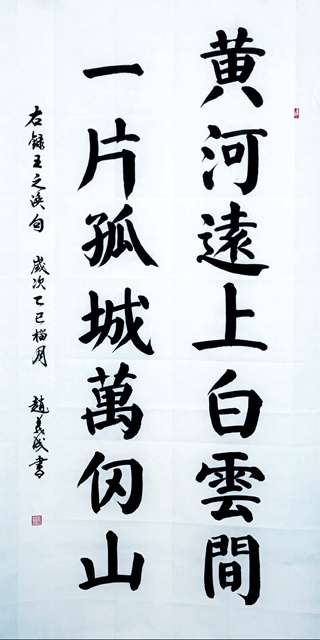 黄河遠上白雲間
一片孤城萬仞山
右録王之渙句 歲次乙巳榴月 趙義成書